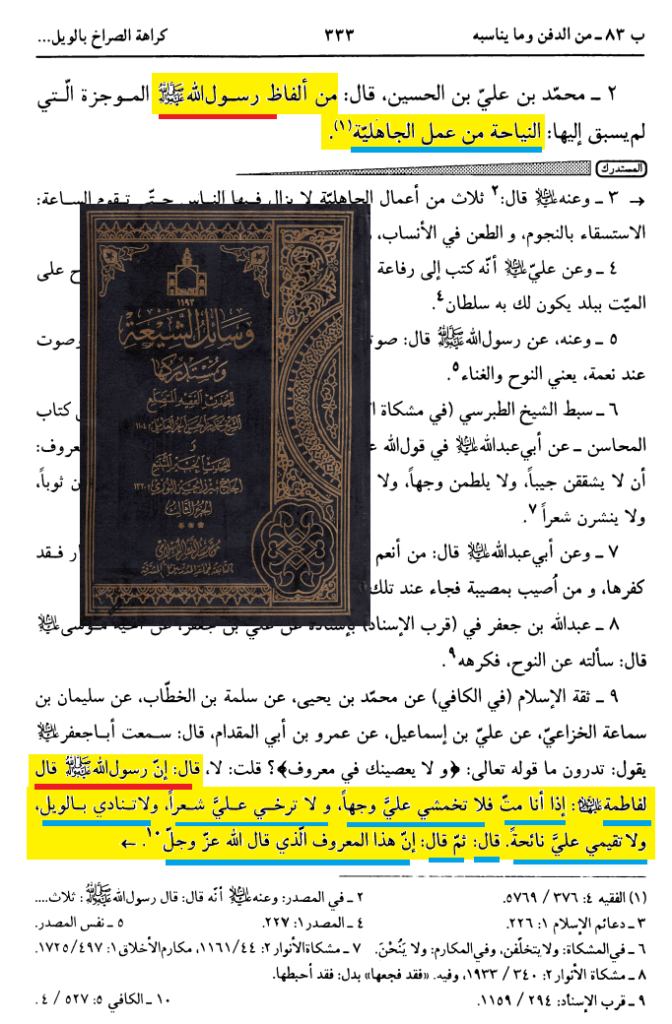 ب ٨٣ ـ من الدفن وما يناسبه ٣٣٣ كراهة الصراخ بالويل...
٢ ـ محمّد بن عليّ بن الحسين، قال: من ألفاظ رسول‌الله ﷺ الموجزة الّتي
لم‌يسبق إليها: النياحة من عمل الجاهليّة(١).
المستدرك
→ ٣ ـ وعنه عليه السلام قال:٢ ثلاث من أعمال الجاهليّة لا يزال فيها الناس حتّى تقوم الساعة:
الاستسقاء بالنجوم، و الطعن في الأنساب،
٤ ـ وعن عليّ عليه السلام أنّه كتب إلى رفاعة على
الميّت ببلد يكون لك به سلطان٤.
٥ ـ وعنه، عن رسول‌الله ﷺ قال: صوت
عند نعمة، يعني النوح والغناء٥.
٦ ـ سبط الشيخ الطبرسي (في مشكاة كتاب
المحاسن ـ عن أبي‌عبدالله عليه السلام في قول‌الله
أن لا يشققن جيباً، ولا يلطمن وجهاً، ولا ثوباً،
ولا ينشرن شعراً٧.
٧ ـ وعن أبي‌عبدالله عليه السلام قال: من أنعم فقد
كفرها، و من اُصيب بمصيبة فجاء عند تلك
٨ ـ عبدالله بن جعفر في (قرب الإسناد) بإسناده عن علي بن جعفر، عن أخيه موسى عليه السلام
قال: سألته عن النوح، فكرهه٩.
٩ ـ ثقة الإسلام (في الكافي) عن محمّد بن يحيى، عن سلمة بن الخطّاب، عن سليمان بن
سماعة الخزاعيّ، عن عليّ بن إسماعيل، عن عمرو بن أبي المقدام، قال: سمعت أباجعفر عليه السلام
يقول: تدرون ما قوله تعالى: ﴿و لا يعصينك في معروف﴾؟ قلت: لا، قال: إنّ رسول‌الله ﷺ قال
لفاطمة عليها السلام: إذا أنا متّ فلا تخمشي عليَّ وجهاً، و لا ترخي عليَّ شعراً، ولاتنادي بالويل،
ولاتقيمي عليَّ نائحةً. قال: ثمّ قال: إنّ هذا المعروف الّذي قال الله عزّ وجلّ١٠. ←
(١) الفقيه ٤: ٣٧٦ / ٥٧٦٩. ٢ ـ في المصدر: وعنه عليه السلام أنّه قال: قال رسول‌الله ﷺ: ثلاث....
٣ ـ دعائم الإسلام ١: ٢٢٦. ٤ ـ المصدر ١: ٢٢٧. ٥ ـ نفس المصدر.
٦ ـ في المشكاة: ولايتخلّفن، وفي المكارم: ولا يَنُحْنَ. ٧ ـ مشكاة الأنوار ٢: ١١٦١/٤٤، مكارم الأخلاق ١: ١٧٢٥/٤٩٧.
٨ ـ مشكاة الأنوار ٢: ٣٤٠ / ١٩٣٣، وفيه. «فقد فجعها» بدل: فقد أحبطها.
٩ ـ قرب الإسناد: ٢٩٤ / ١١٥٩. ١٠ ـ الكافي ٥: ٥٢٧ / ٤.
١١٩٣
وسائل الشيعة
ومستدركها
للمحدث الفقيه المتضلع
و
الجزء الثالث
مؤسسة النشر الإسلامي